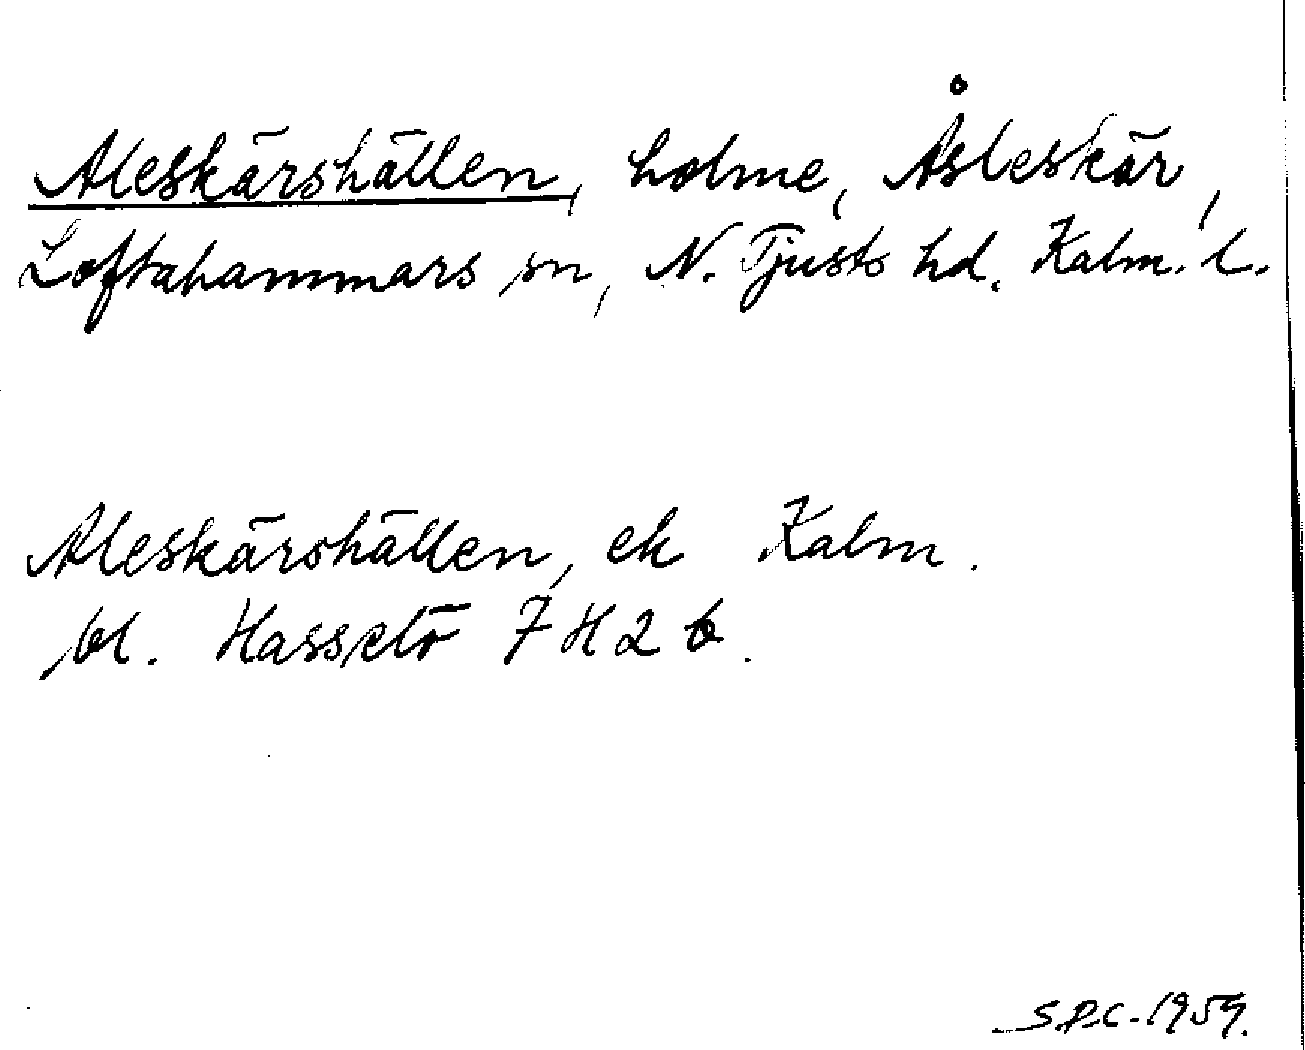 Aleskärshällen, holme, Åsleskär,
Loftahammars sn, N. Tjusts hd. Kalm. l.
Aleskärshällen, ek Kalm.
bl. Hasselö 7H2b.
S.P.C. 1959.